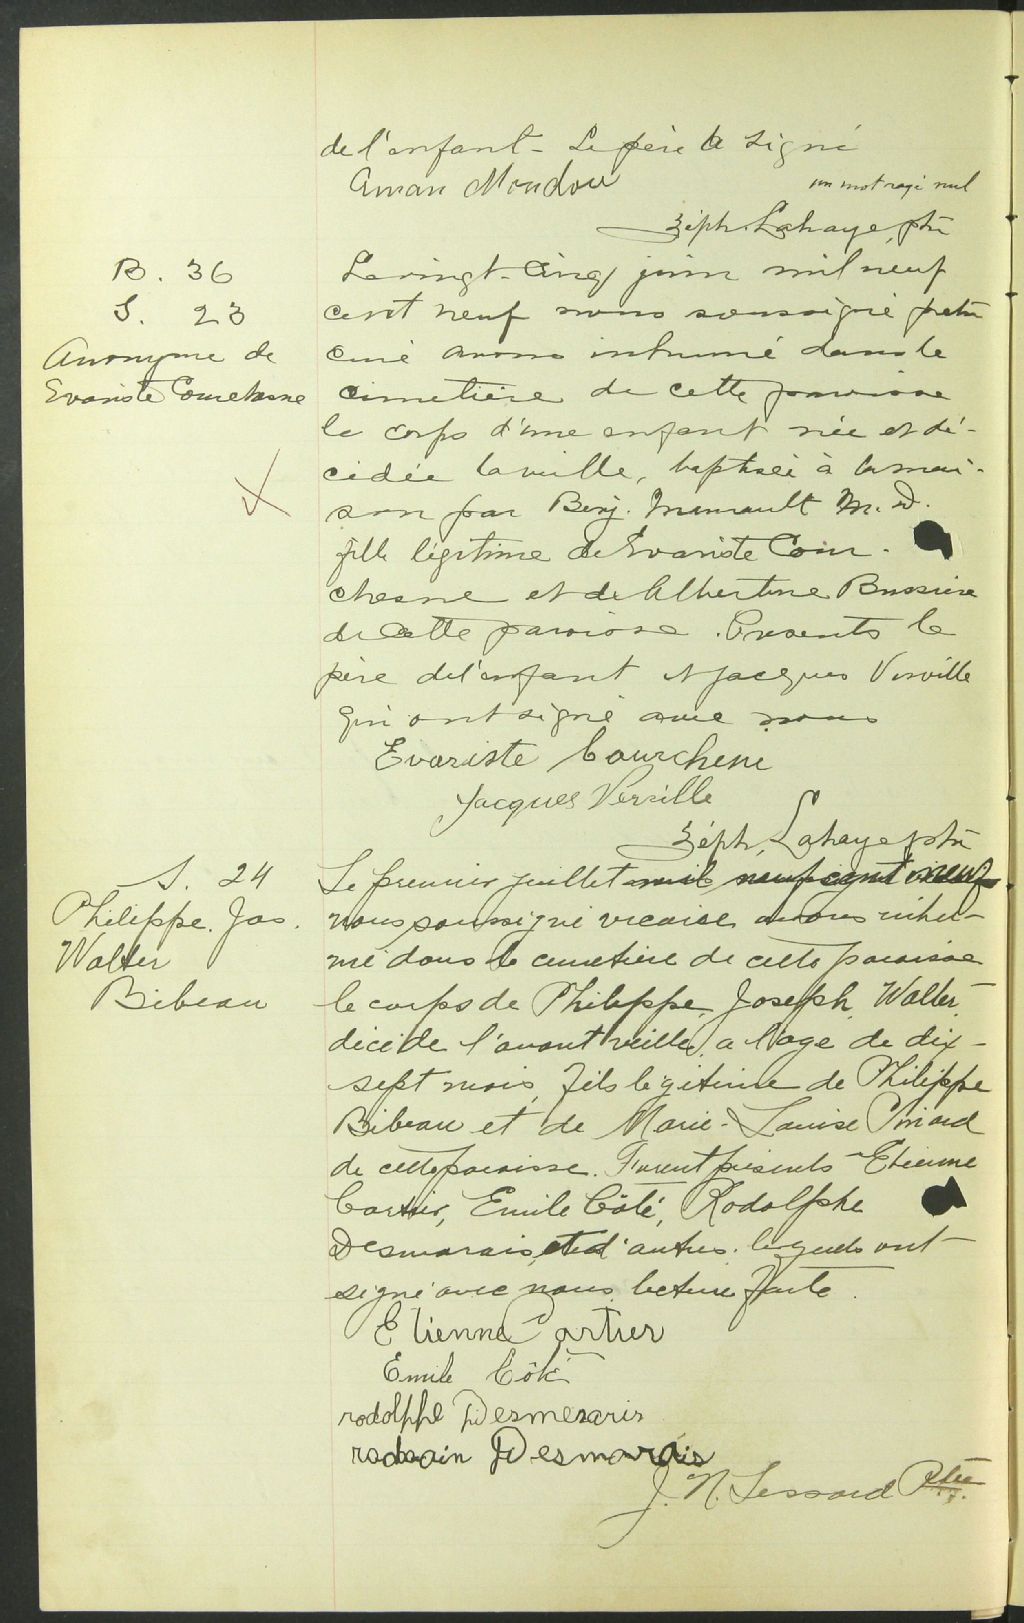 de l'enfant - Le père a signé
Aman Mondou
un mot rayé nul
Zéph. Lahaye, ptre
B. 36
S. 23
Anonyme de
Evariste Courchesne
Le vingt-cinq juin mil neuf
cent neuf nous soussigné prêtre
curé avons inhumé dans le
cimetière de cette paroisse
le corps d'une enfant née et dé-
cédée la veille, baptisée à la mai-
son par Benj. M. D.
fille légitime de Evariste Cour-
chesne et de Albertine Bussière
de cette paroisse. Présents le
père de l'enfant et Jacques Verville
qui ont signé avec nous
Evariste Courchene
Jacques Verville
Zéph. Lahaye ptre
S. 24
Philippe. Jos.
Walter
Bibeau
Le premier juillet mil neuf cent neuf
nous soussigné vicaire avons inhu-
mé dans le cimetière de cette paroisse
le corps de Philippe, Joseph, Walter,
décédé l'avant veille, a l'age de dix-
sept mois, fils légitime de Philippe
Bibeau et de Marie-Louise
de cette paroisse. Furent présents Etienne
Cartier, Emile Côté, Rodolphe
Desmarais, et d'autres. lesquels ont
signé avec nous. lecture faite.
Etienne Cartier
Emile Côté
rodolphe Desmesaris
Desmarais
J. N. Lessard Ptre